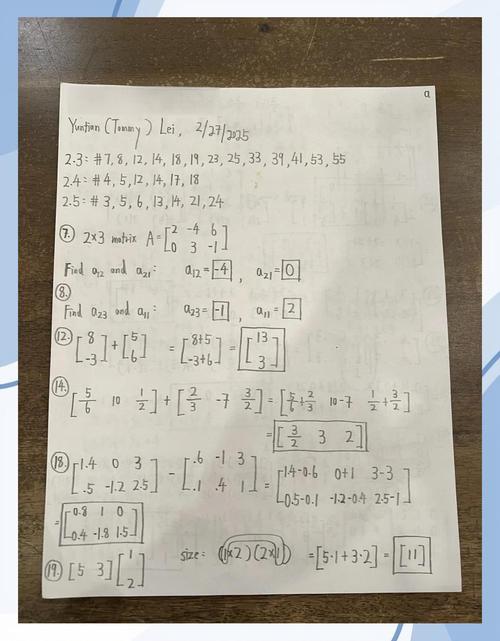 a
Yuntian (Tommy) Lei, 2/27/2025
2.3: #7, 8, 12, 14, 18, 19, 23, 25, 33, 39, 41, 53, 55
2.4: #4, 5, 12, 14, 17, 18
2.5: #3, 5, 6, 13, 14, 21, 24
⑦ 2×3 matrix A = [2 -4 6
0 3 -1]
Find a₁₂ and a₂₁: a₁₂ = -4, a₂₁ = 0
⑧
Find a₂₃ and a₁₁: a₂₃ = -1, a₁₁ = 2
⑫ [8 + [5 = [8+5 = [13
-3] 6] -3+6] 3]
⑭ [5/6 10 1/2] + [2/3 -7 3/2] = [5/6+2/3 10-7 1/2+3/2]
= [3/2 3 2]
⑱ [1.4 0 3 - [.6 -1 3 = [1.4-0.6 0+1 3-3
.5 -1.2 2.5] .1 .4 1] 0.5-0.1 -1.2-0.4 2.5-1]
= [0.8 1 0
0.4 -1.8 1.5]
size: (1×2)(2×1) = [5·1+3·2] = [11]
⑲ [5 3] [1
2]